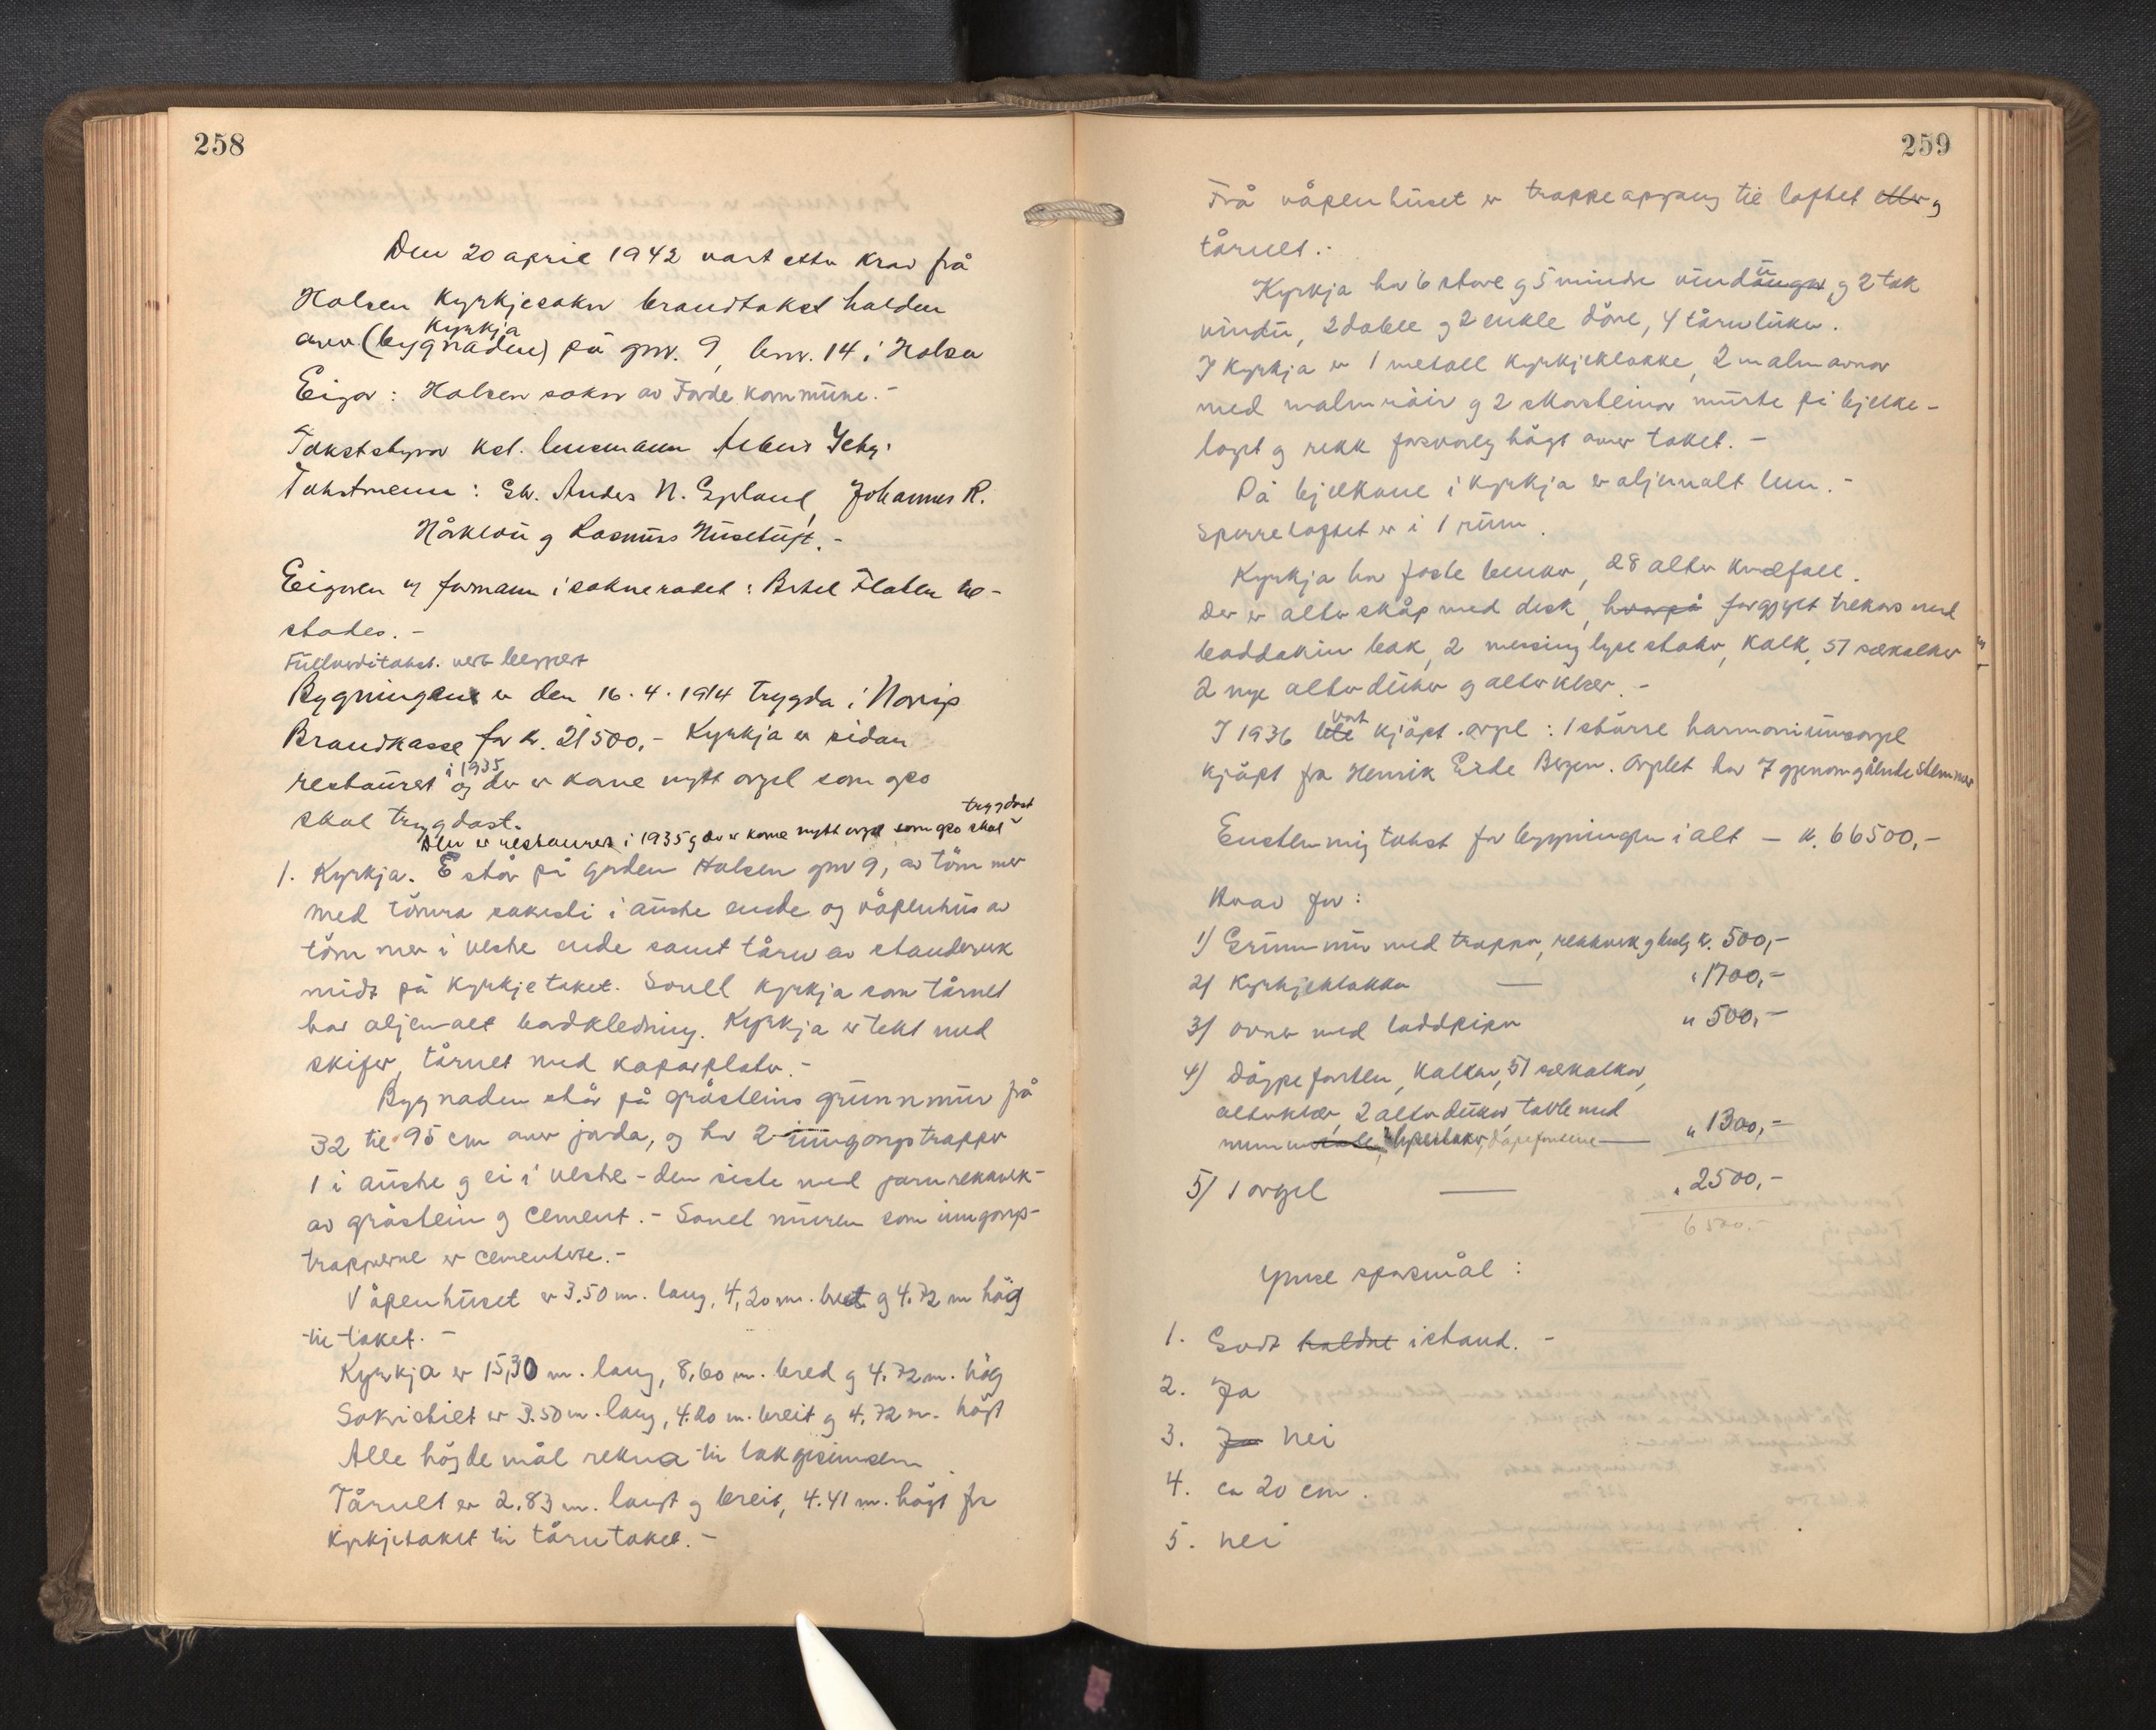 258
Den 20 april 1942 vart etter krav frå
Halsen Kyrkjesokn brandtakst halden
over (bygnaden) kyrkja på gnr. 9, bnr. 14 i Halsen
Eigar: Halsen sokn av Førde kommune.-
Takststyrar kst. lensmann
Takstmenn: Anders N. Espeland, Johannes R.
Håklou g Rasmus Husetuft.-
Eigaren ved formann i sokneradet: Bertel Flaten te-
stades.-
Fullverditakst. vert begjært
Bygningene er den 16.4.1914 trygda i Norigs
Brandkasse for kr. 21500,- Kyrkja er sidan
restaurert i 1935 og der er kome nytt orgel som også
skal trygdast.
Den er restaurert i 1935 g der er kome nytt orgel som også skal trygdast
1. Kyrkja. står på garden Halsen gnr 9, av tömmer
med tömra sakristi i austre ende og våpenhus av
tömmer i vestre ende samt tårn av standverk
midt på kyrkjetaket. Sovel kyrkja som tårnet
har utvendig bordkledning. Kyrkja er tekt med
skifer, tårnet med koparplater.-
Bygnaden står på gråsteins grunnmur frå
32 til 95 cm over jorda, og har 2 inngangstrapper
1 i austre g ei i vestre - den siste med jarnrekkverk-
av gråstein g cement.- Sovel muren som inngangs-
trapperne er cementerte.-
Våpenhuset er 3.50 m. lang, 4,20 m. breit g 4.72 m høg
til taket.-
Kyrkja er 15,30 m. lang, 8,60 m. bred g 4.72 m. høg
Sakristiet er 3.50 m. lang, 4.20 m. breit g 4,72 m. høgt
Alle høgde mål rekna til takgesimsen
Tårnet er 2.83 m. langt g breit, 4.41 m. högt fra
kyrkjetaket til tårntaket.-
259
Frå våpenhuset er trappeopgang til loftet etter g
tårnet.:
Kyrkja har 6 store g 5 mindre vindu g 2 tak
vindu, 2 doble g 2 enkle döre, 4 tårnluker.
I Kyrkja er 1 metall kyrkjeklokke, 2 malmovnar
med malmröir g 2 skorsteinar murte på bjelke-
laget g rekk forsvarleg högt over taket.-
På bjelkane i kyrkja er leir.-
Sperreloftet er i 1 rum.
Kyrkja har faste benker, alter knefall.
Der er alter skåp med disk, hvorpå forgylt trekors med
baldakin bak, 2 messing lysestaker, Kalk, 51 særkalker
2 nye alterduker g alterklær.-
I 1936 ble vart kjöpt orgel: 1 större harmoniumsorgel
kjöpt fra Henrik Eide Bergen. Orglet har 7 gjenomgående stemmer
Enstemmig takst for bygningen i alt - kr. 66500,-
Herav for:
1) Grunnmur med trapper, rekkverk g kr. 500,-
2) Kyrkjeklokka — " 1700,-
3) ovner med " 500,-
4) döypefonten, Kalken, 51 særkalker,
alterklær, 2 alterduker, tavle med
nummer, lysestaker, døpefontene — " 1300,-
5) 1 orgel — " 2500,-
6500.-
Ymse spørsmål:
1. Godt haldne istand.-
2. Ja
3. Ja nei
4. ca 20 cm.
5. nei